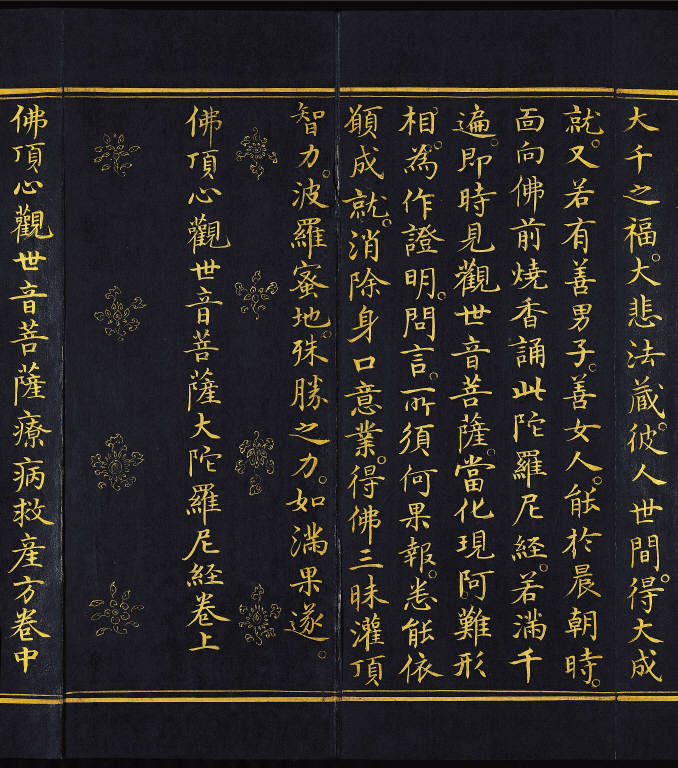 大千之福。大悲法藏。彼人世間。得大成
就。又若有善男子。善女人。能於晨朝時。
面向佛前燒香誦此陀羅尼經。若滿千
遍。即時見觀世音菩薩。當化現阿難形
相。為作證明。問言。所須何果報。悉能依
願成就。消除身口意業。得佛三昧灌頂
智力。波羅蜜地。殊勝之力。如滿果遂。
佛頂心觀世音菩薩大陀羅尼經卷上
佛頂心觀世音菩薩療病救產方卷中